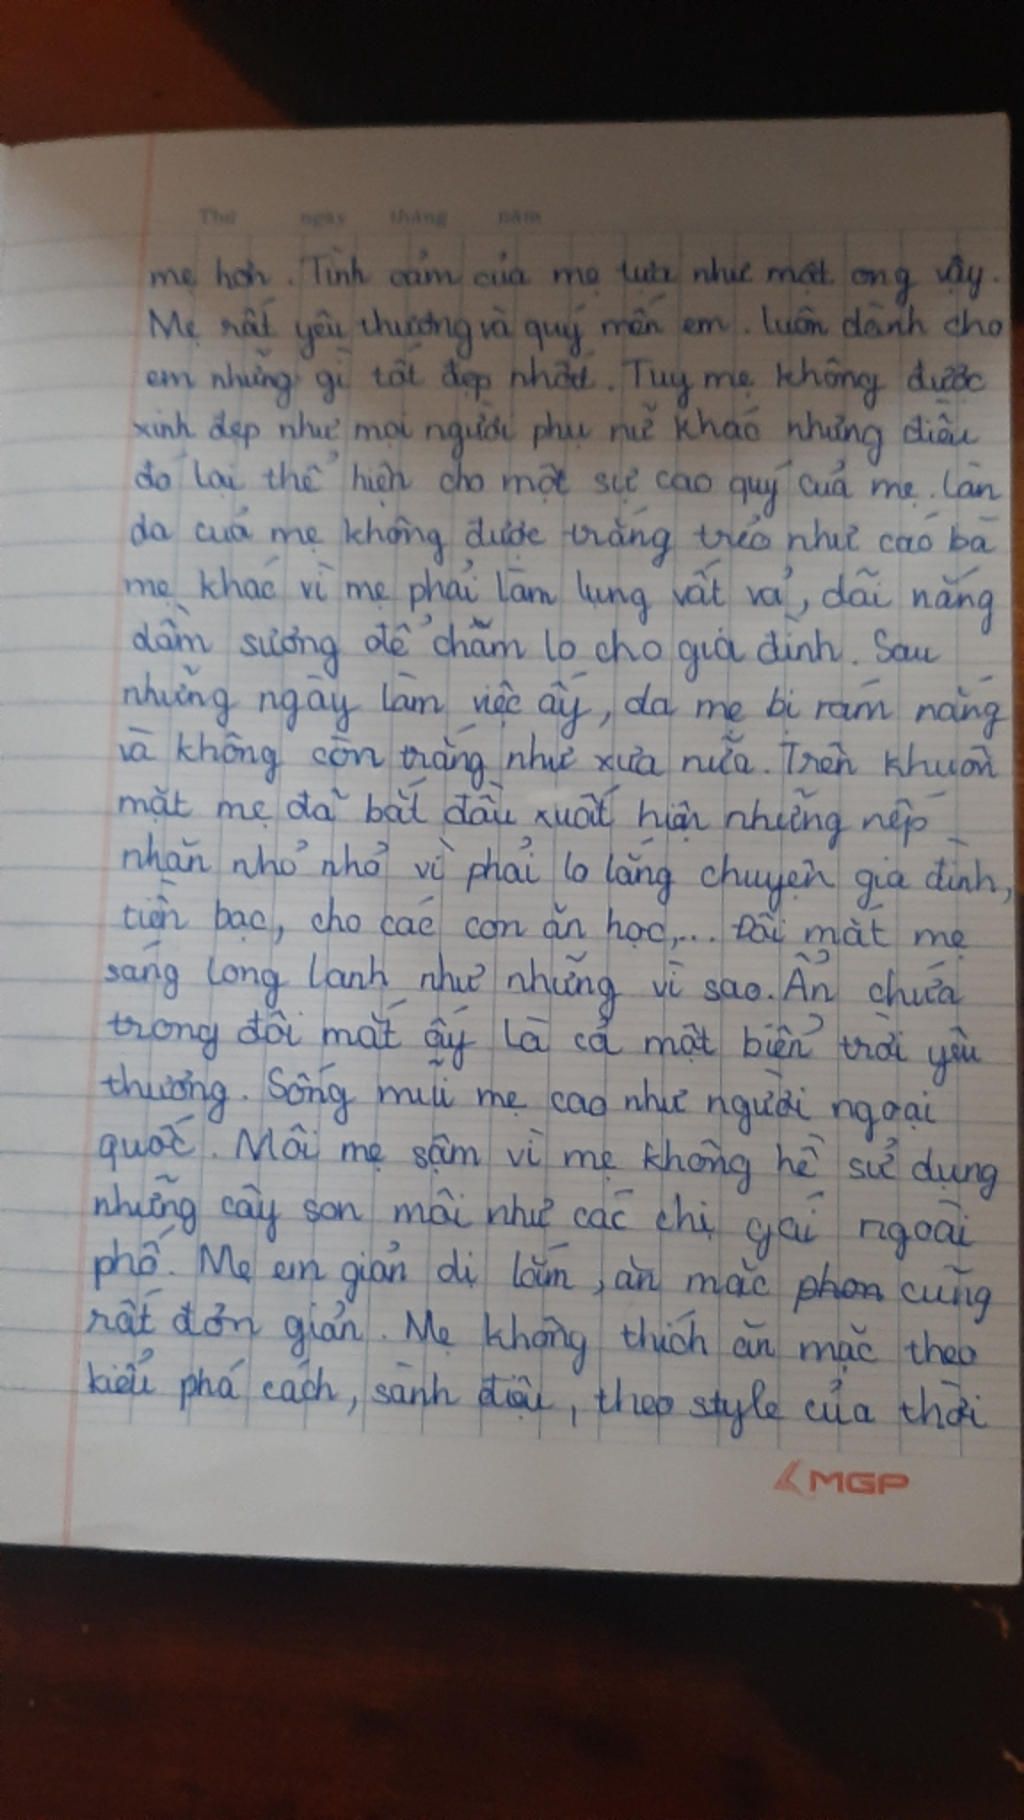 Thứ ngày tháng năm
mẹ hơn. Tình cảm của mẹ tựa như mật ong vậy.
Mẹ rất yêu thương và quý mến em. luôn dành cho
em những gì tốt đẹp nhất. Tuy mẹ không được
xinh đẹp như mọi người phụ nữ khác nhưng điều
đó lại thể hiện cho một sự cao quý của mẹ. Làn
da của mẹ không được trắng trẻo như các bà
mẹ khác vì mẹ phải làm lụng vất vả, dãi nắng
dầm sương để chăm lo cho gia đình. Sau
những ngày làm việc ấy, da mẹ bị rám nắng
và không còn trắng như xưa nữa. Trên khuôn
mặt mẹ đã bắt đầu xuất hiện những nếp
nhăn nho nhỏ vì phải lo lắng chuyện gia đình,
tiền bạc, cho các con ăn học,... Đôi mắt mẹ
sáng long lanh như những vì sao. Ẩn chứa
trong đôi mắt ấy là cả một biển trời yêu
thương. Sống mũi mẹ cao như người ngoại
quốc. Môi mẹ sậm vì mẹ không hề sử dụng
những cây son môi như các chị gái ngoài
phố. Mẹ em giản dị lắm, ăn mặc cũng
rất đơn giản. Mẹ không thích ăn mặc theo
kiểu phá cách, sành điệu, theo style của thời
MGP